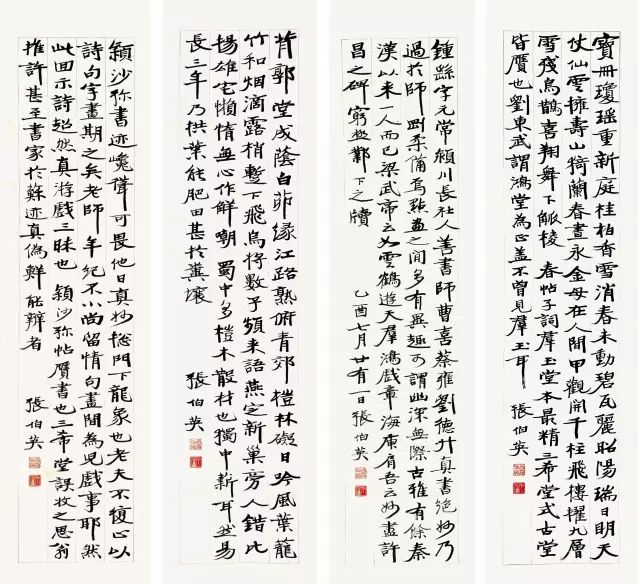 寶冊瓊瑤重新庭桂柏香雪消春未動碧瓦麗昭陽瑞日明天
仗仙雲擁壽山猗蘭春晝永金母在人間甲觀開千柱飛樓擢九層
雪殘烏鵲喜翔舞下觚棱 春帖子詞羣玉堂本最精三希堂式古堂
皆贋也劉東武謂鴻堂為正蓋不曾見羣玉耳 張伯英
鍾繇字元常潁川長社人善書師曹喜蔡雍劉德升真書絕妙乃
過於師剛柔備焉點畫之間多有異趣可謂幽深無際古雅有餘秦
漢以來一人而已梁武帝云如雲鶴遊天羣鴻戲章海庾肩吾云妙盡許
昌之碑窮極鄴下之牘 乙酉七月廿有一日張伯英
背郭堂成蔭白茆緣江路熟俯青郊榿林礙日吟風葉籠
竹和烟滴露梢暫下飛烏將數子頻來語燕定新巢旁人錯比
揚雄宅懶惰無心作解嘲 蜀中多榿木散材也獨中薪耳然易
長三年乃拱葉能肥田甚於糞壤 張伯英
潁沙弥書迹巉聳可畏他日真妙總門下龍象也老夫不復止以
詩句字畫期之矣老師年紀不小尚留情句畫間為兒戲事耶然
此回示詩超然真游戲三昧也 潁沙弥帖贋書也三希堂誤收之思翁
推許甚至書家於蘇迹真偽鮮能辯者 張伯英